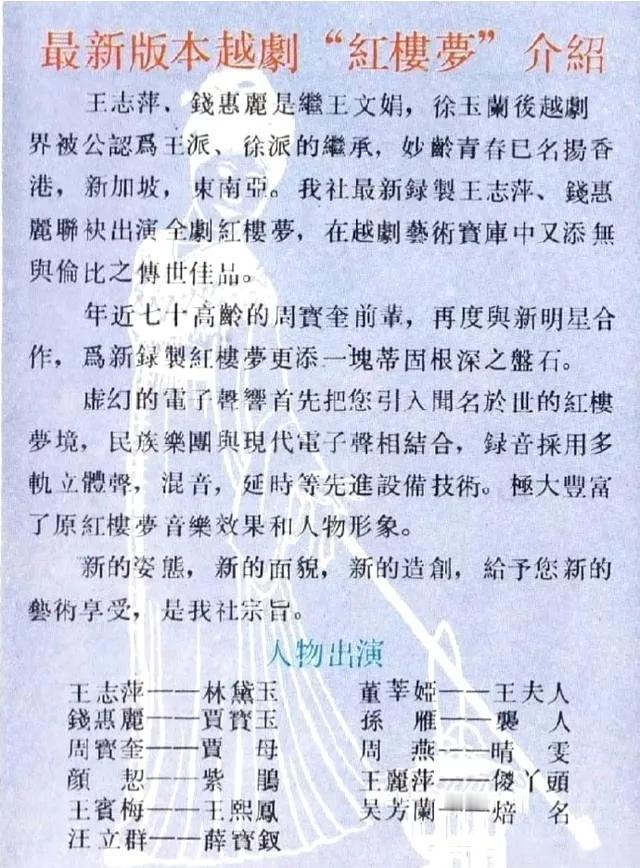 最新版本越劇“紅樓夢”介紹
王志萍、錢惠麗是繼王文娟，徐玉蘭後越劇
界被公認爲王派、徐派的繼承，妙齡青春已名揚香
港，新加坡，東南亞。我社最新録製王志萍、錢惠
麗聯袂出演全劇紅樓夢，在越劇藝術寶庫中又添無
與倫比之傳世佳品。
年近七十高齡的周寶奎前輩，再度與新明星合
作，爲新録製紅樓夢更添一塊蒂固根深之盤石。
虛幻的電子聲響首先把您引入聞名於世的紅樓
夢境，民族樂團與現代電子聲相結合，録音採用多
軌立體聲，混音，延時等先進設備技術。極大豐富
了原紅樓夢音樂效果和人物形象。
新的姿態，新的面貌，新的造創，給予您新的
藝術享受，是我社宗旨。
人物出演
王志萍——林黛玉
錢惠麗——賈寶玉
周寶奎——賈　母
顔　恝——紫　鵑
王賓梅——王熙鳳
汪立群——薛寶釵
董莘婭——王夫人
孫　雁——襲　人
周　燕——晴　雯
王麗萍——傻丫頭
吴芳蘭——焙　名